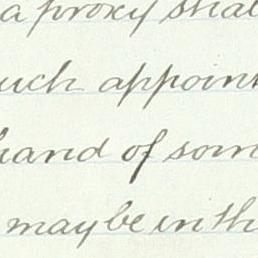 a proxy shal
uch appoint
hand of som
may be in th